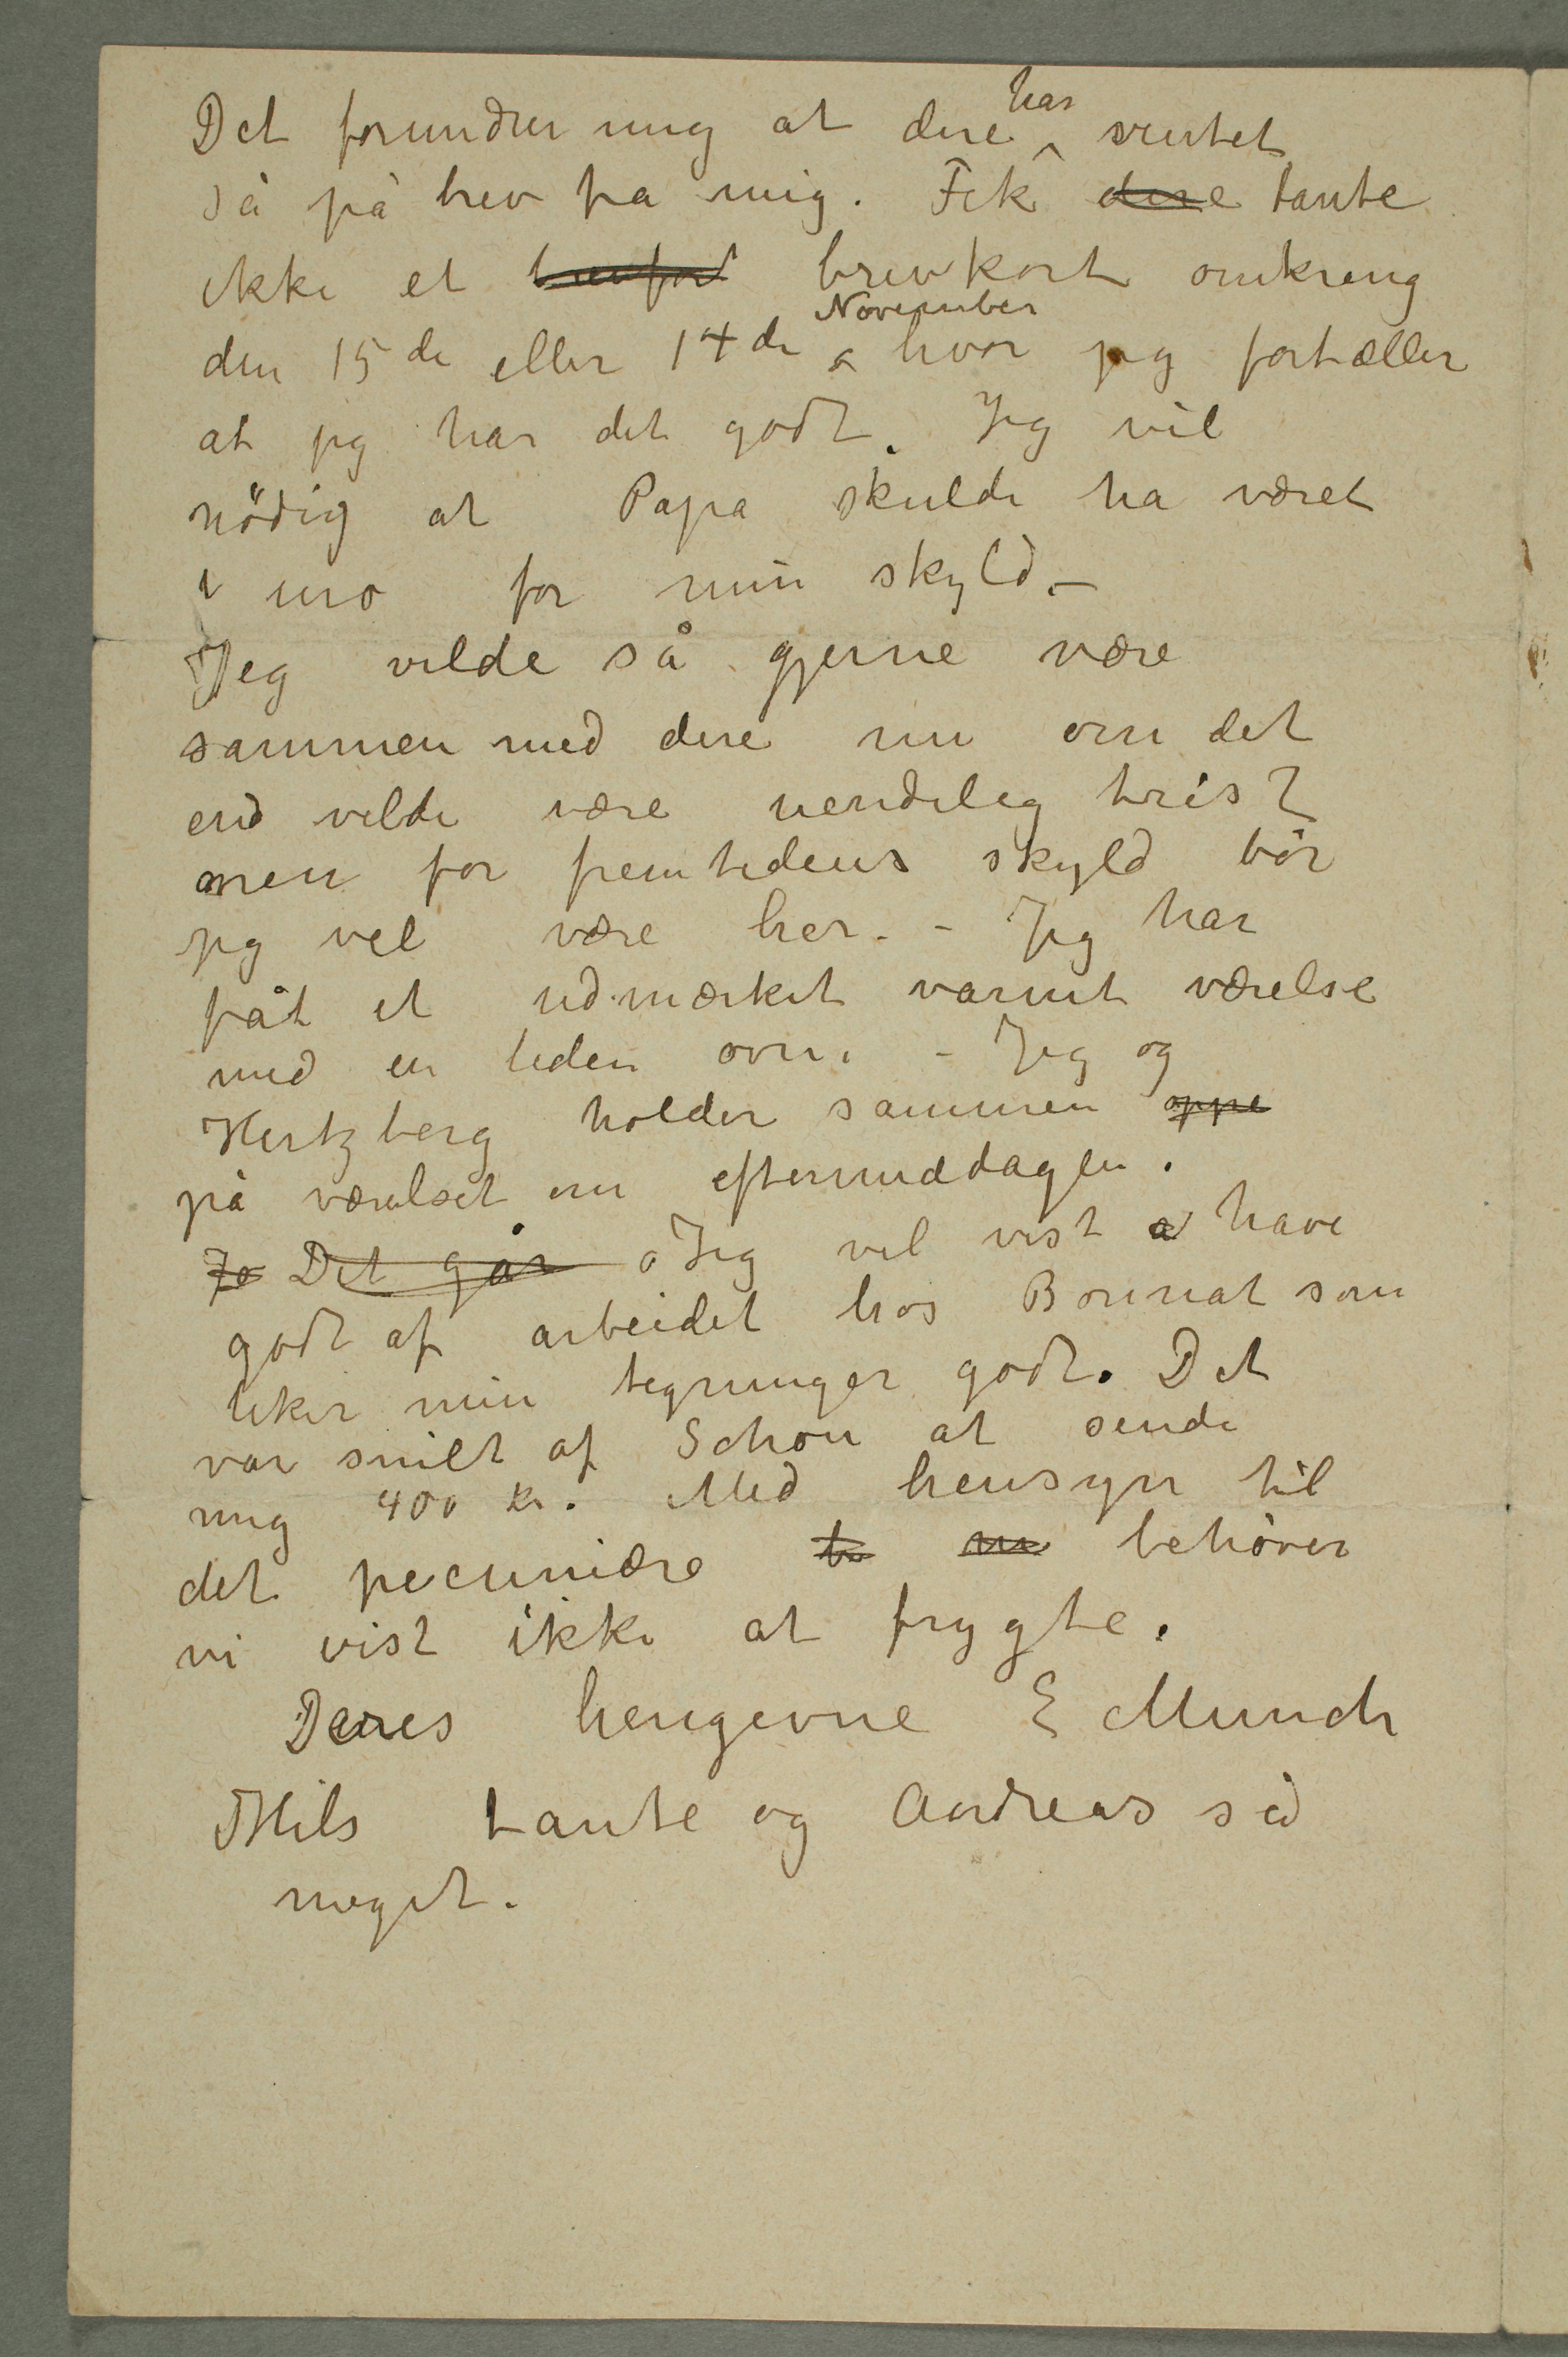 Det forundrer mig at dere har ventet
så på brev fra mig. Fik dere tante
ikke et brevkort omkring
den 15de eller 14de November hvor jeg fortæller
at jeg har det godt. Jeg vil
nödig at Papa skulde ha været
i uro for min skyld. –
Jeg vilde så gjerne være
sammen med dere nu om det
end vilde være uendelig trist
men for fremtidens skyld bör
jeg vel være her. – Jeg har
fåt et udmærket varmt værelse
med en liden ovn. – Jeg og
Hertzberg holder sammen oppe
på værelset om eftermiddagen.
Jo Det går Jeg vil vist a have
godt af arbeidet hos Bonnat som
liker min tegninger godt. Det
var snilt af Schou at sende
mig 400 kr. Med hensyn til
det pecuniære behöver
vi vist ikke at frygte.
Deres hengivne E Munch
Hils tante og Andreas så
meget.